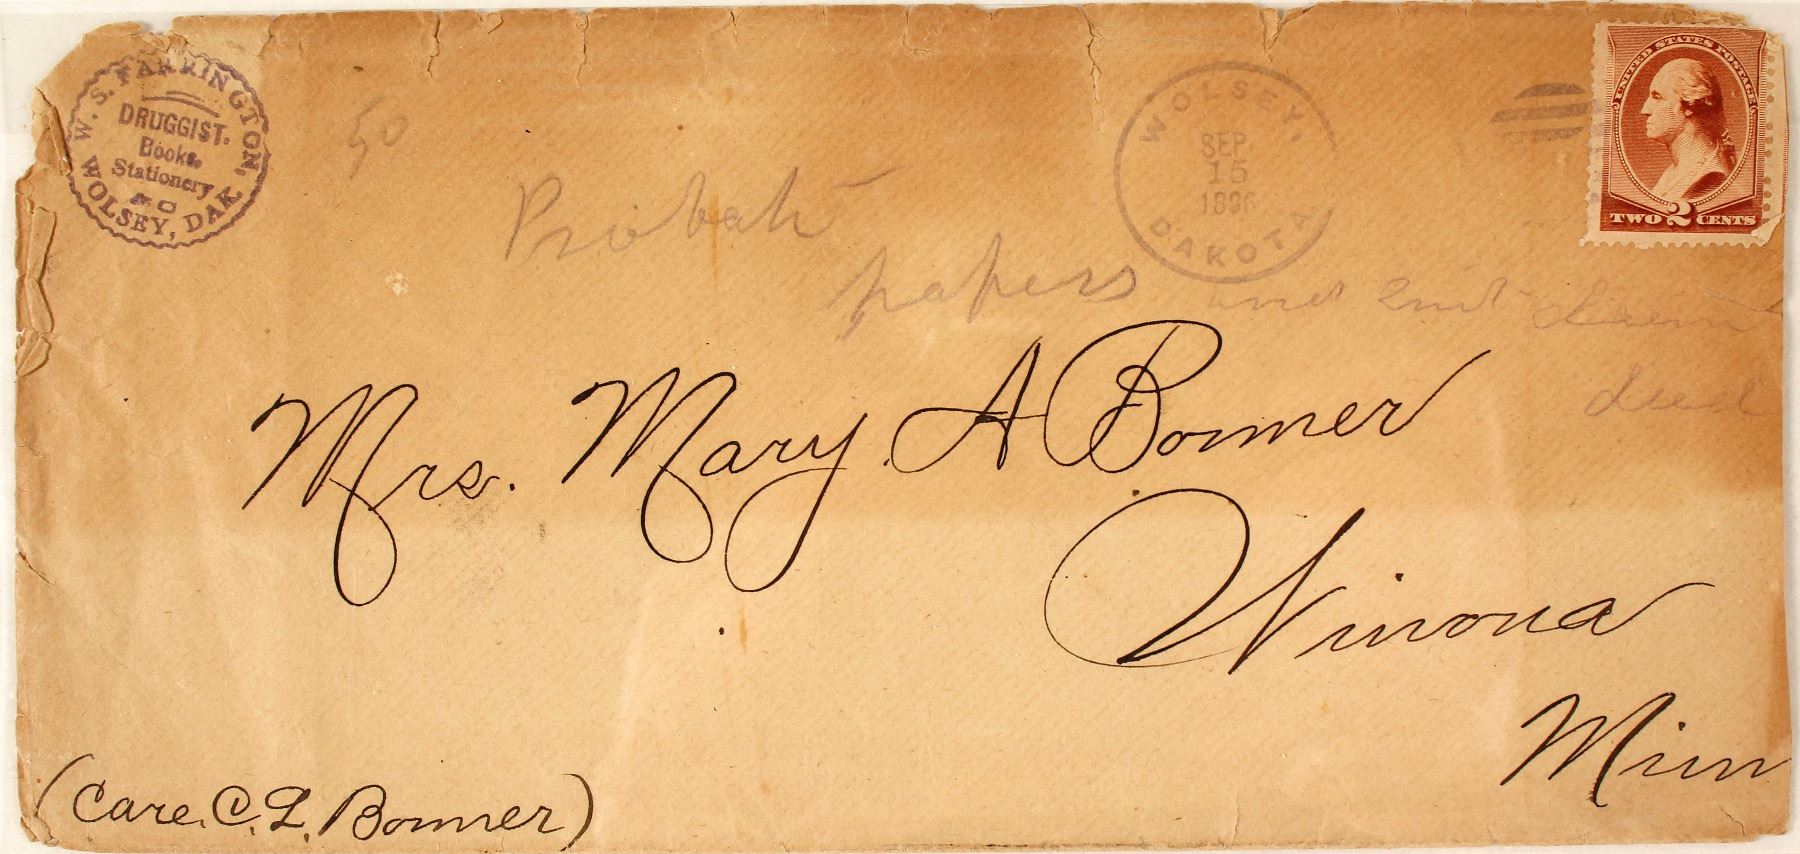 W. S. FARRINGTON,
DRUGGIST.
Books.
Stationery
&C
WOLSEY, DAK.
50
WOLSEY,
SEP
15
DAKOTA
UNITED STATES POSTAGE
TWO 2 CENTS
Probate
papers and deed
Mrs. Mary A Bonner
Winona
Minn
(Care. C. L. Bonner)